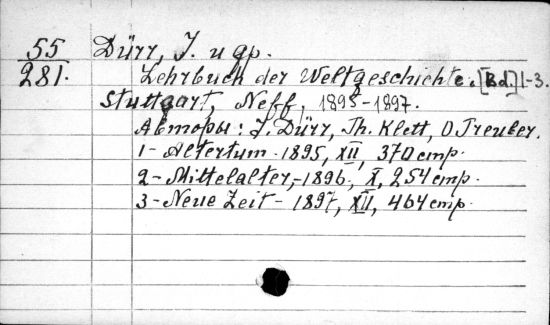 55
281.
Dürr, J. и др.
Lehrbuch der Weltgeschichte. [Bd.] 1-3.
Stuttgart, Neff, 1895-1897.
Авторы: J. Dürr, Th. Klett, O. Treuber.
1 - Altertum - 1895, XII, 370 стр.
2 - Mittelalter, - 1896, X, 254 стр.
3 - Neue Zeit - 1897, XII, 464 стр.